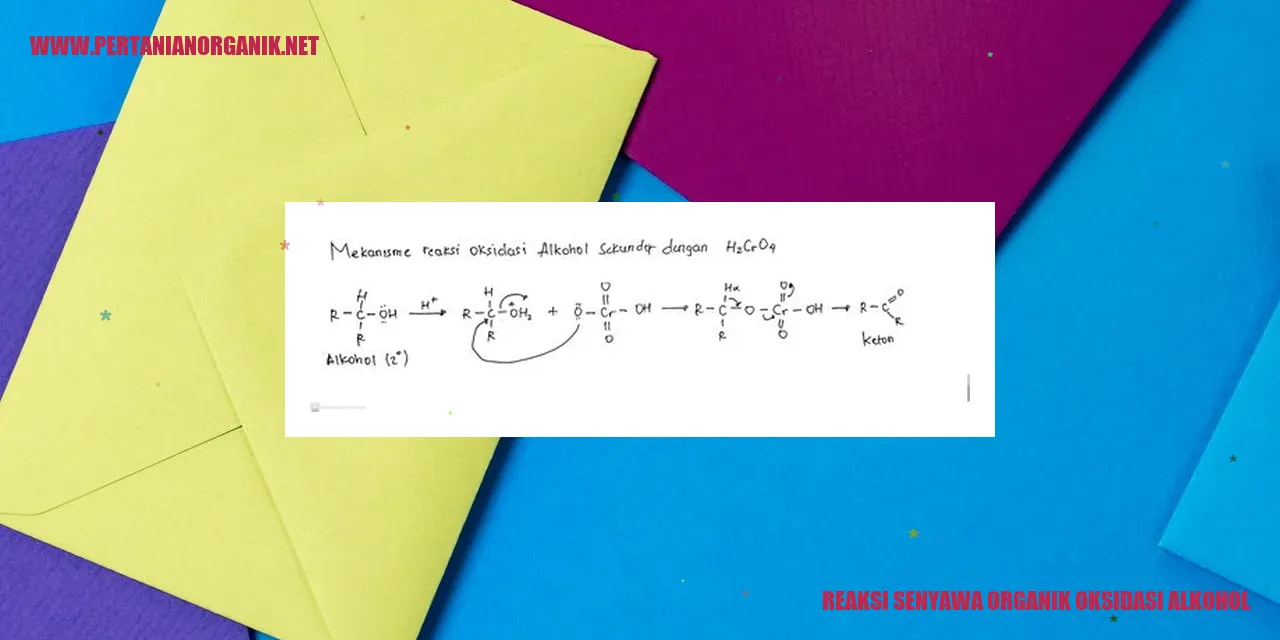 WWW.PERTANIANORGANIK.NET
Mekanisme reaksi oksidasi Alkohol Sekunder dengan H₂CrO₄
H H O Hα O
R – C – ÖH H⁺ R – C – OH₂ + Ö – Cr – OH R – C – O – Cr – OH R – C O
R R O R O R
Alkohol (2°) keton
REAKSI SENYAWA ORGANIK OKSIDASI ALKOHOL